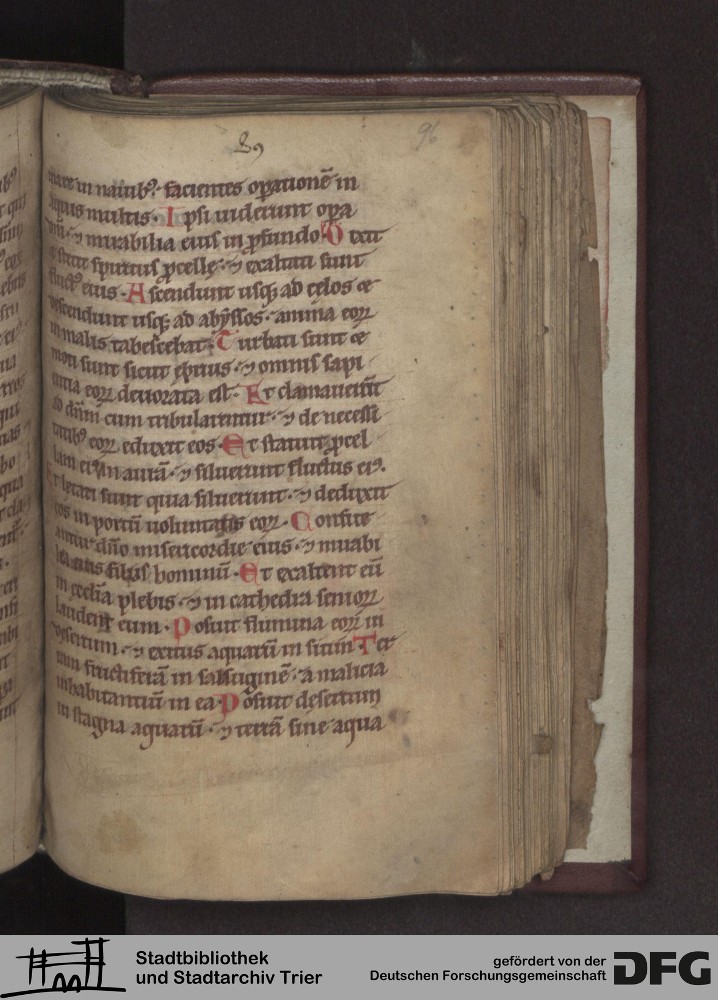 89
96
mare in nauib9· facientes oꝑationē in
aquis multis· I psi uiderunt oꝑa
dn̄i· ⁊ mirabilia eius in ꝓfundo· D ixit
⁊ stetit spiritus ꝓcelle· ⁊ exaltati sunt
fluct9 eius· A scendunt usqꝫ ad celos ⁊
descendunt usqꝫ ad abyssos· anima eoꝝ
in malis tabescebat· T urbati sunt ⁊
moti sunt sicut ebrius· ⁊ omnis sapi
entia eoꝝ deuorata est· Et clamauerūt
ad dn̄m cum tribularentur· ⁊ de necessi
tatib9 eoꝝ eduxit eos· E t statuit ꝓcel
lam ei9 in aurā· ⁊ siluerunt fluctus ei9.
E t letati sunt quia siluerunt· ⁊ deduxit
eos in portū uoluntatis eoꝝ· C onfite
antur dn̄o misericordie eius· ⁊ mirabi
lia eius filiis hominū· E t exaltent eū
in ecclia plebis· ⁊ in cathedra senioꝝ
laudent eum· P osuit flumina eoꝝ in
desertum· ⁊ exitus aquarū in sitim T er
ram fructiferā in salsuginē· a malicia
inhabitantiū in ea· P osuit desertum
in stagna aquarū· ⁊ terrā sine aqua
Stadtbibliothek
und Stadtarchiv Trier
gefördert von der
Deutschen Forschungsgemeinschaft
DFG